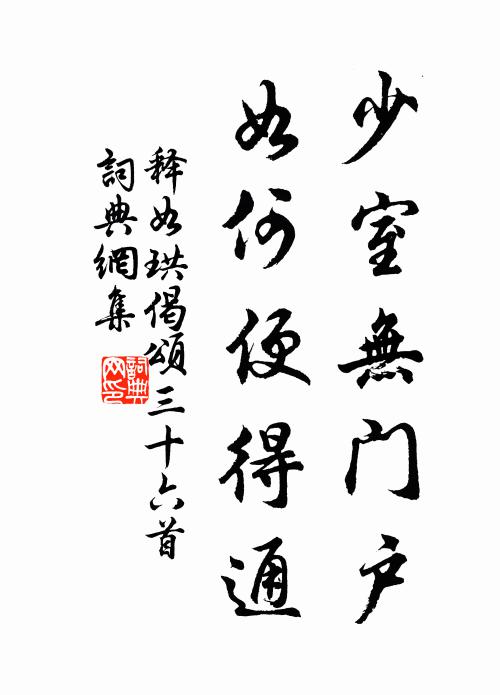 少室無門户
如何便得通
释如珙偈頌三十六首
詞典網集
詞典網印